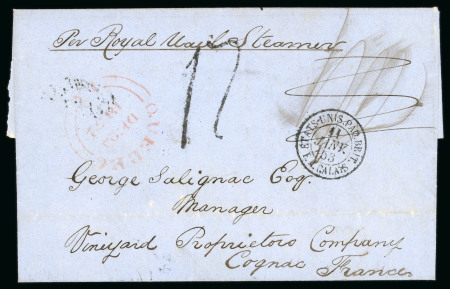 Per Royal Mail Steamer
11
QUEBEC
ETATS-UNIS PAQ. BRIT.
11
JANV.
53
CALAIS
George Salignac Esq.
Manager
Vineyard Proprietors Company
Cognac France